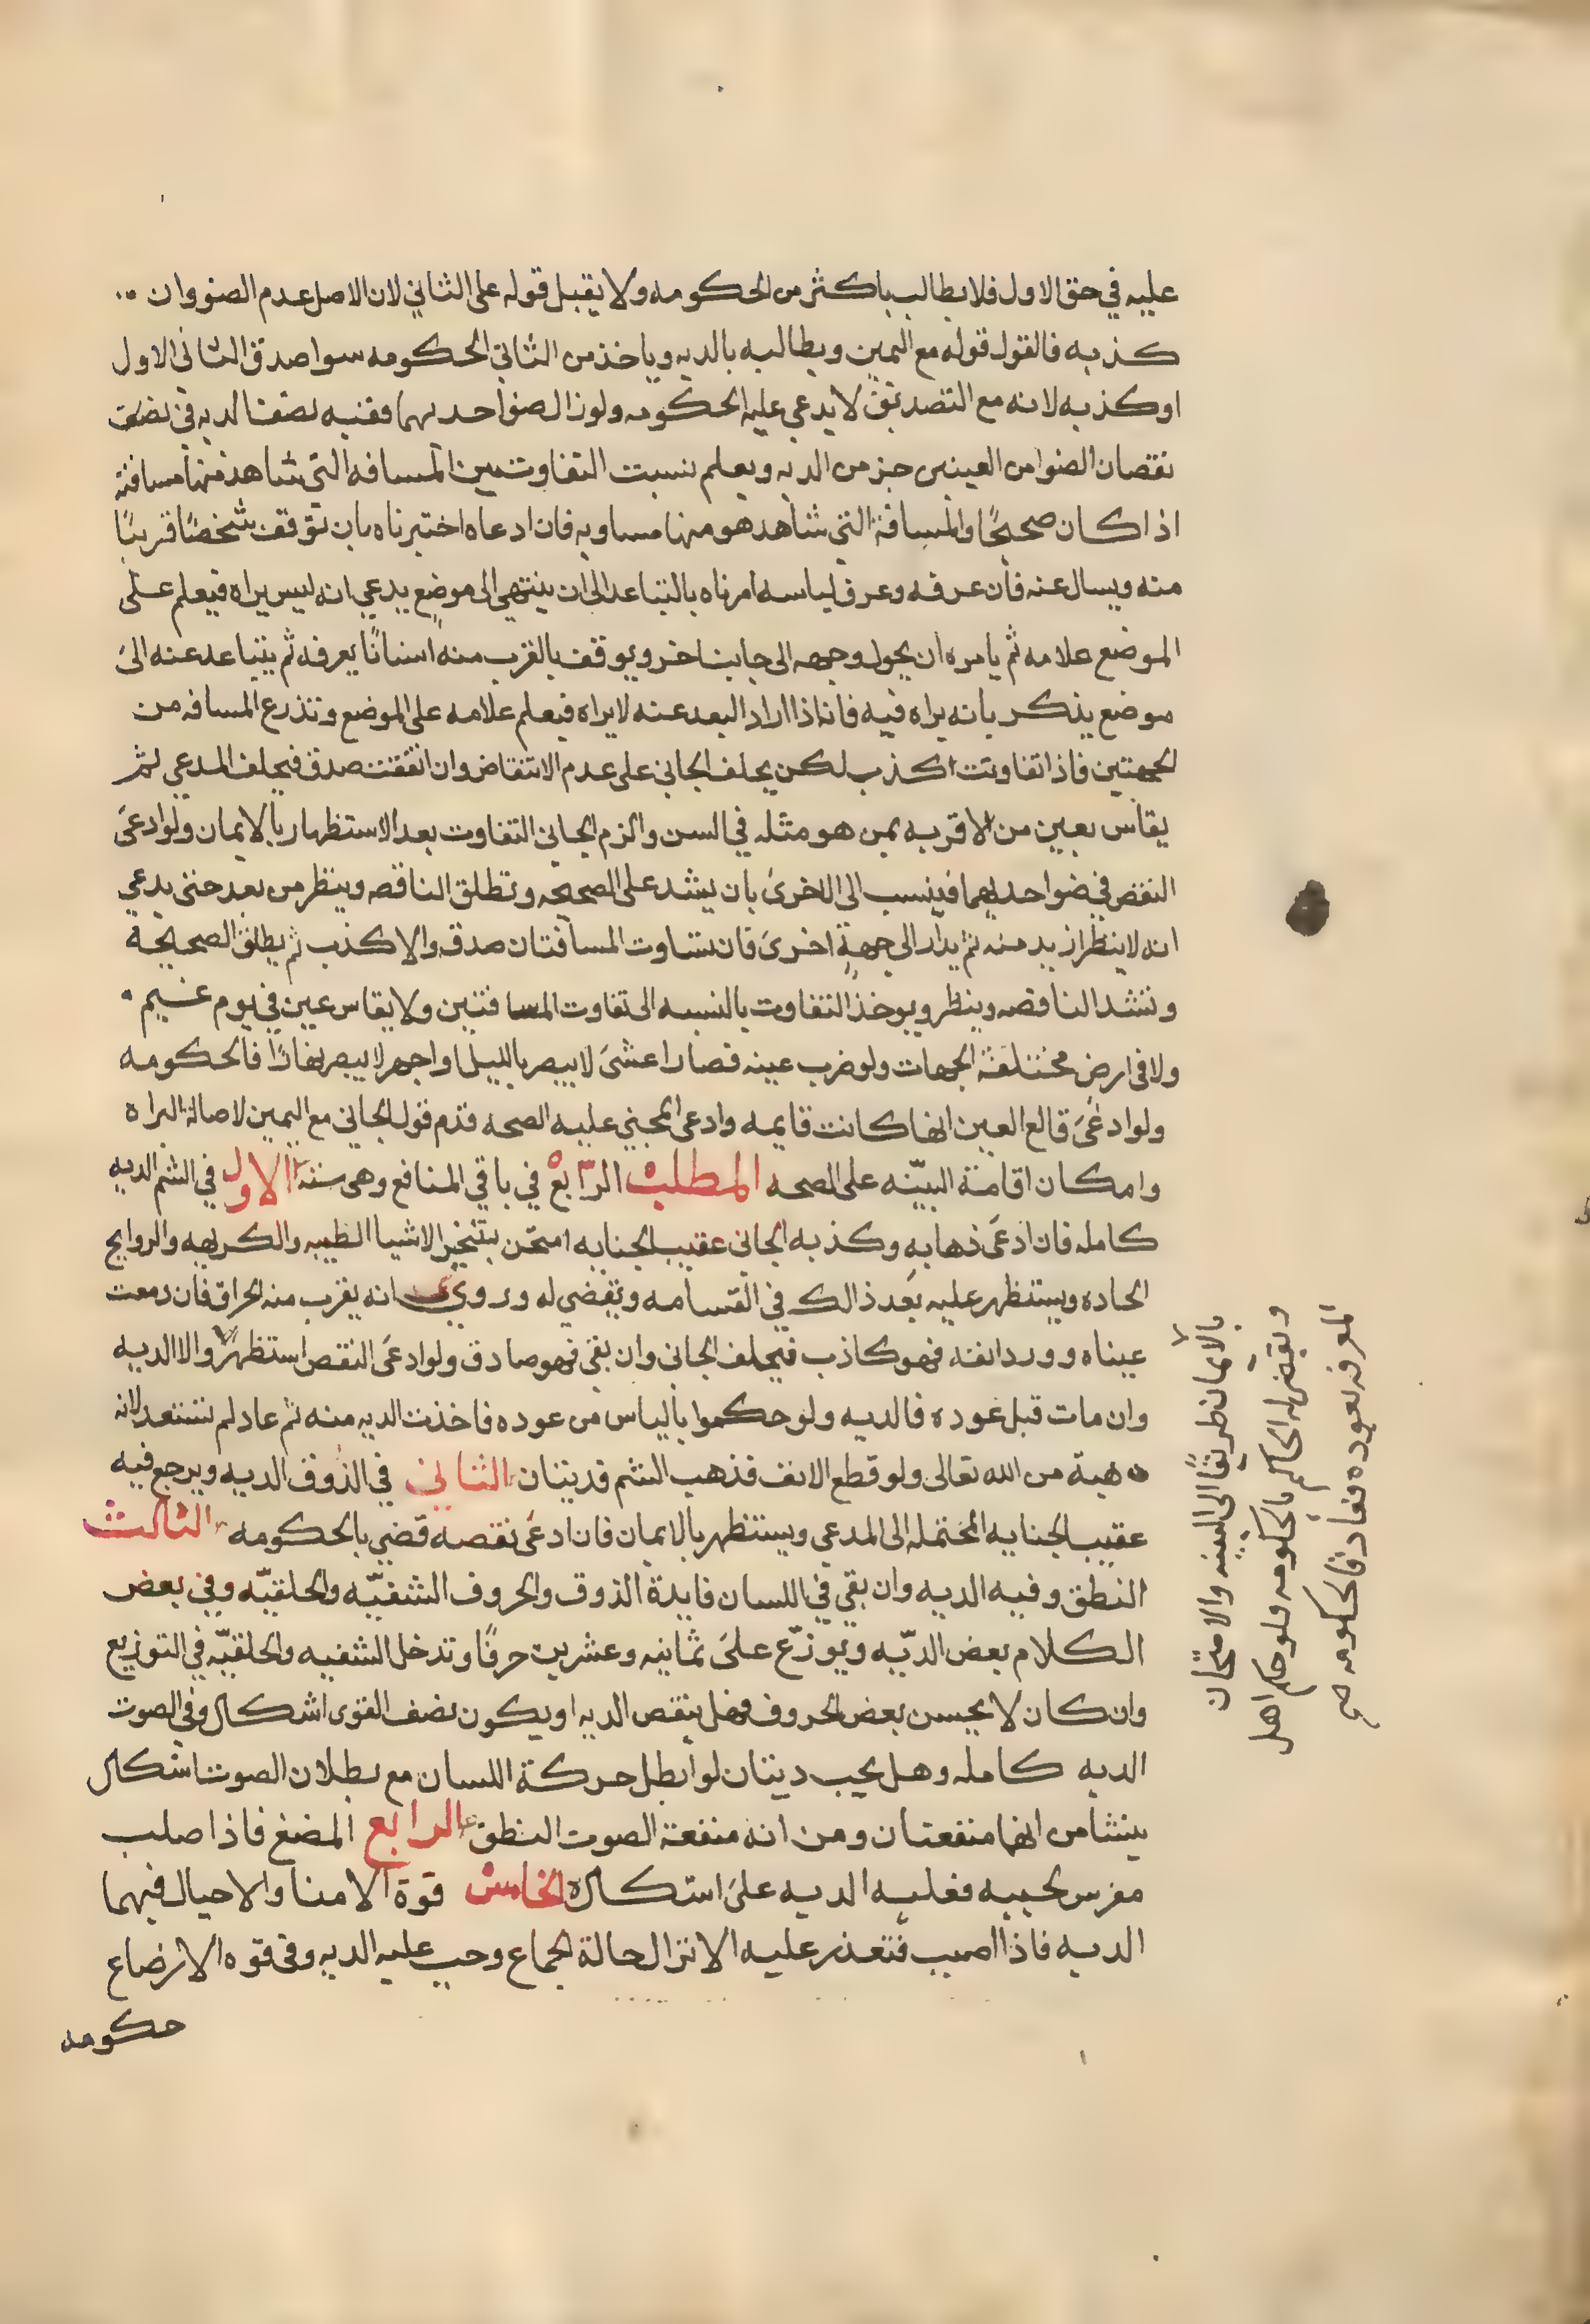 عليه في حق الاول فلا يطالب باكثر من الحكومه ولا يقبل قوله على الثاني لان الاصل عدم الضو وان
كذبه فالقول قوله مع اليمين ويطالبه بالديه وياخذ من الثاني الحكومه سوا صدق الثانى الاول
او كذبه لانه مع التصديق لا يدعي عليه الحكومه ولو زال ضو احديهما ففيه نصف الديه في نصف
نقصان الضو من العينين جز من الديه ويعلم بنسبت التفاوت بين المسافه التي شاهد منها مسافته
اذا كان صحيحًا والمسافة التي شاهد هو منها مساويه فان ادعاه اختبرناه بان توقف شخصًا قريبًا
منه ويسال عنه فان عرفه وعرف لباسه امرناه بالتباعد الى ان ينتهي الى موضع يدعي انه ليس يراه فيعلم على
الموضع علامه ثم يامره ان يحول وجهه الى جانب اخر ويوقف بالقرب منه اسنانًا يعرفه ثم يتباعد عنه الىَ
موضع يذكر بانه يراه فيه فانه اذا اراد البعد عنه لا يراه فيعلم علامه على الموضع وتذرع المسافه من
الجهتين فاذا تفاوتت اكذب لكن يحلف الجاني على عدم الانتقاض وان اتفقت صدق فيحلف المدعي ثم
يقاس بعين من الاقربه بمن هو مثله في السن والزم الجانى التفاوت بعد الاستظهار بالايمان ولو ادعىَ
النقص في ضو احديهما فينسب الى الاخرىَ بان يشد على الصحيحه وتطلق الناقصه وينظر من بعد حتى يدعي
انه لا ينظر ازيد منه ثم يدار الى جهةٍ اخرىَ فان تساوت المسافتان صدق والا كذب ثم يطلق الصحيحة
وتشد الناقصه وينظر ويوخذ التفاوت بالنسبه الى تفاوت المسافتين ولا يقاس عين في يوم غيم
ولا فى ارض مختلفة الجهات ولو ضرب عينه فصار اعشىَ لا يبصر بالليل او اجهر لا يبصر نهارًا فالحكومه
ولو ادعىَ قالع العين انها كانت قايمه وادعى المجني عليه الصحه قدم قول الجاني مع اليمين لاصالة البراه
وامكان اقامة البيّنه على الصحه المطلب الرابع في باقي المنافع وهى ستة الاول في الشم الديه
كامله فان ادعىَ ذهابه وكذبه الجانى عقيب الجنايه امتحن بتنخير الاشيا الطيبه والكريهه والروايح
الحاده ويستظهر عليه بعد ذالك في القسامه ويقضي له وروي انه يقرب منه الحراق فان دمعت
عيناه وورد انفه فهو كاذب فيحلف الجانى وان بقىَ فهو صادق ولو ادعىَ النقص استظهر والا الديه
وان مات قبل عوده فالديه ولو حكموا بالياس من عوده فاخذت الديه منه ثم عاد لم تستعد لانه
هبة من الله تعالى ولو قطع الانف فذهب الشم فديتان الثانى في الذوق الديه ويرجع فيه
عقيب الجنايه المحتمله الى المدعي ويستظهر بالايمان فان ادعىَ نقصه قضي بالحكومه الثالث
النطق وفيه الديه وان بقي في اللسان فايدة الذوق والحروف الشفيّه والحلقيّه وفي بعض
الكلام بعض الديّه ويوزّع علىَ ثمانيه وعشرين حرفًا وتدخل الشفيه والحلقيّه في التوزيع
وان كان لا يحسن بعض الحروف فهل ينقص الديه او يكون نصف القوى اشكال وفى الصوت
الديه كامله وهل يجب ديتان لو ابطل حركة اللسان مع بطلان الصوت اشكال
ينشا من انهما منفعتان ومن انه منفعة الصوت النطق الرابع المضغ فاذا صلب
مغرس لحييه فعليه الديه علىَ اشكال الخامس قوة الامنا والاحبال فيهما
الديه فاذا اصيب فتعذر عليه الانزال حالة الجماع وجب عليه الديه وفى قوه الارضاع
حكومه
بالايمان طريقًا الى البينه والامتحان
ويقضي له الحاكم بالحكومه ولو حكم اهل
المعرفه بعوده فعاد فالحكومه صح